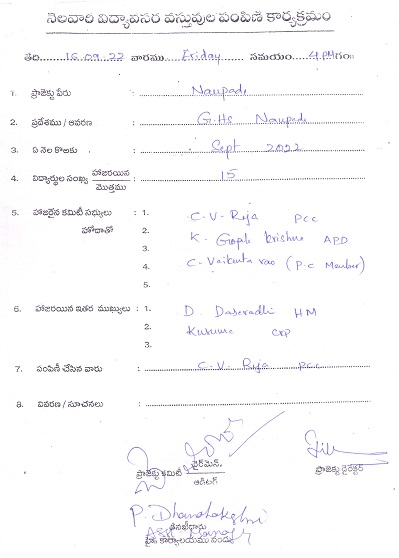 నెలవారి విద్యావసర వస్తువుల పంపిణి కార్యక్రమం
తేది: 16.09.22 వారము Friday సమయం 4 PM గం॥
1. ప్రాజెక్టు పేరు : Naupada
2. ప్రదేశము / ఆవరణ : G.Hs Naupada
3. ఏ నెల కొఱకు : Sept 2022
4. విద్యార్థుల సంఖ్య హాజరయిన / మొత్తము : 15
5. హాజరైన కమిటీ సభ్యులు : 1. C-V- Raja PCC
హోదాతో 2. K. Gopala Krishna APD
3. C-Vaikunta rao (P.C Member)
4.
5.
6. హాజరయిన ఇతర ముఖ్యులు : 1. D. Daseradhi HM
2. Kusuma CRP
3.
7. పంపిణీ చేసిన వారు : C-V- Raja PCC
8. వివరణ / సూచనలు :
ప్రాజెక్టు కమిటీ చైర్‌మెన్ / ఆడిటర్
ప్రాజెక్టు డైరెక్టర్
P. Dhanalakshmi